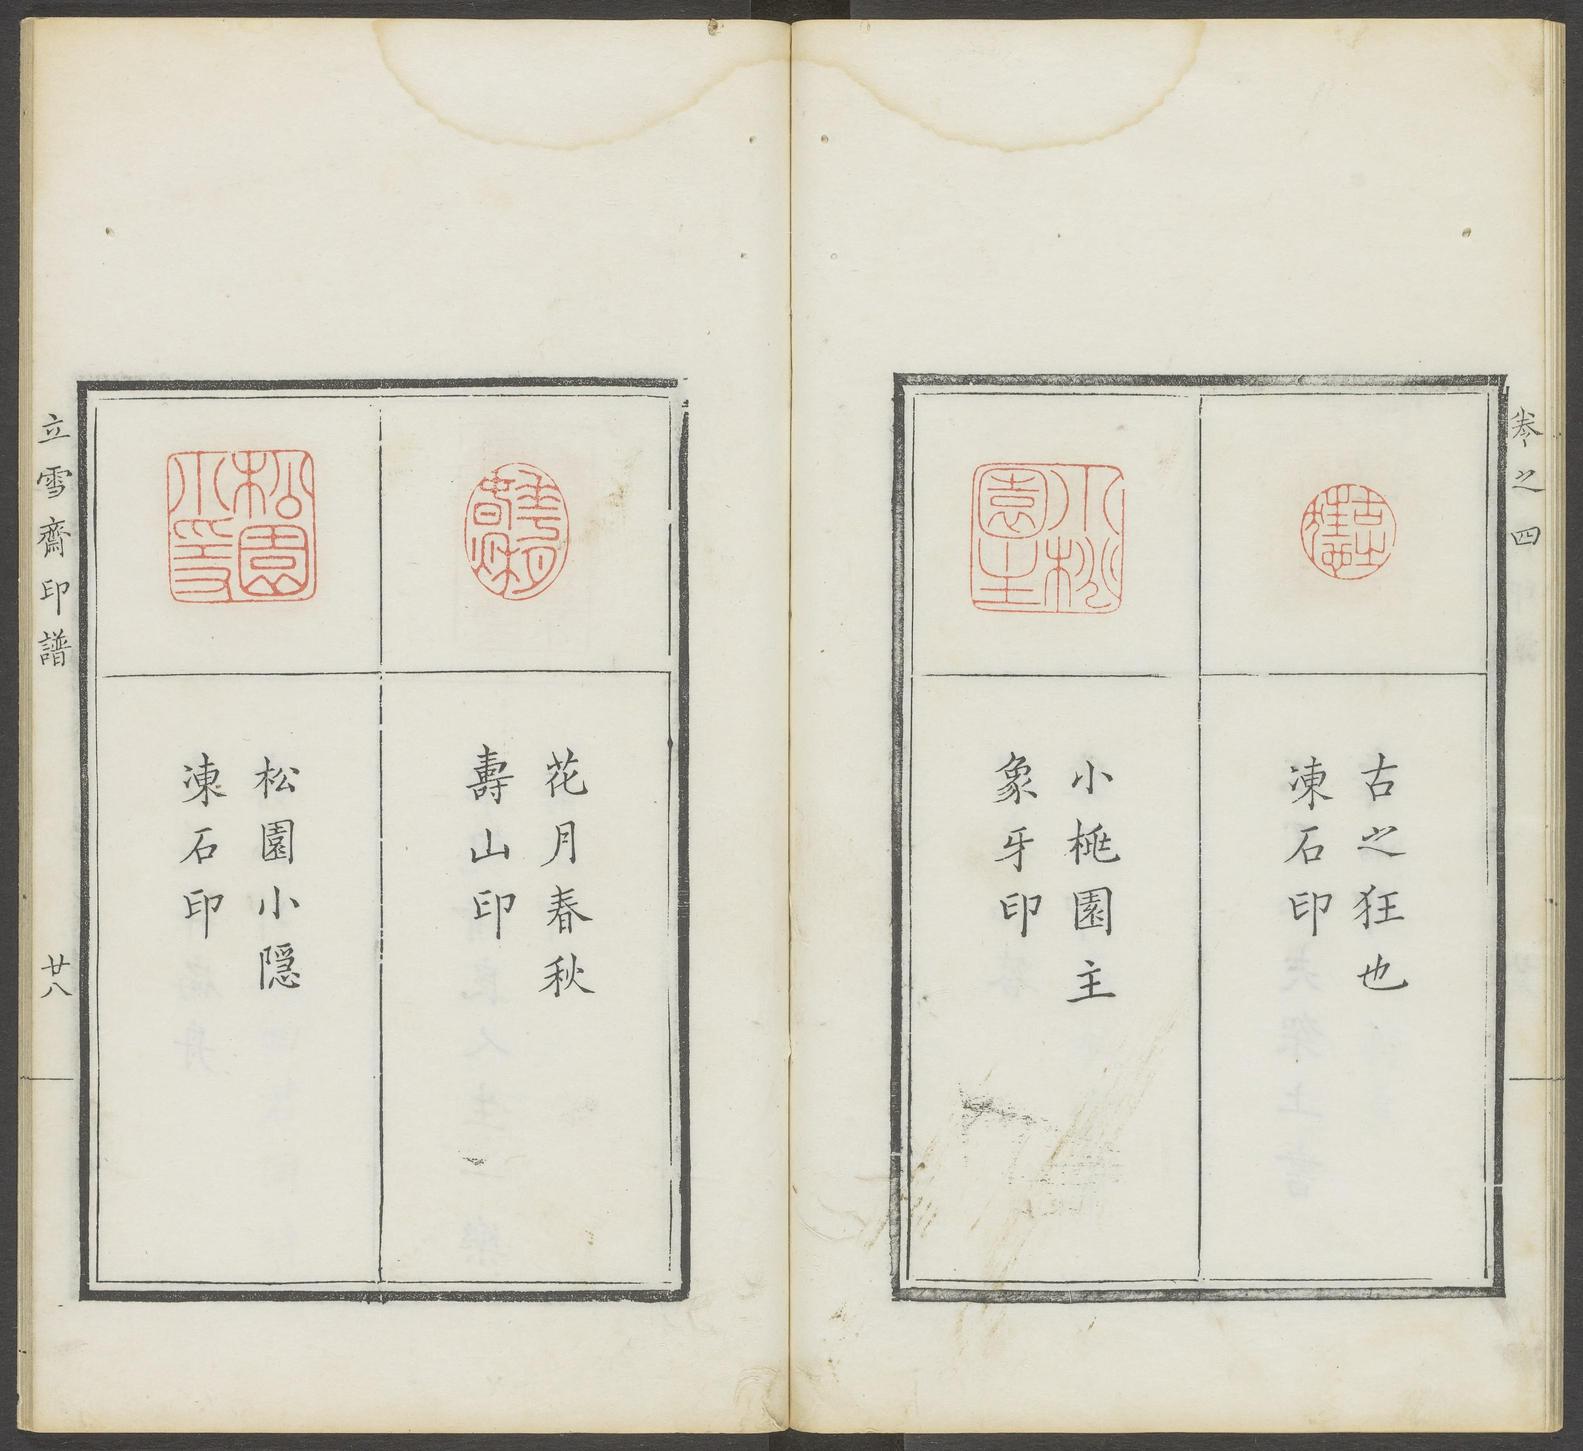 卷之四
古之狂也
凍石印
小桃園主
象牙印
花月春秋
壽山印
松園小隠
凍石印
立雪齋印譜
廿八